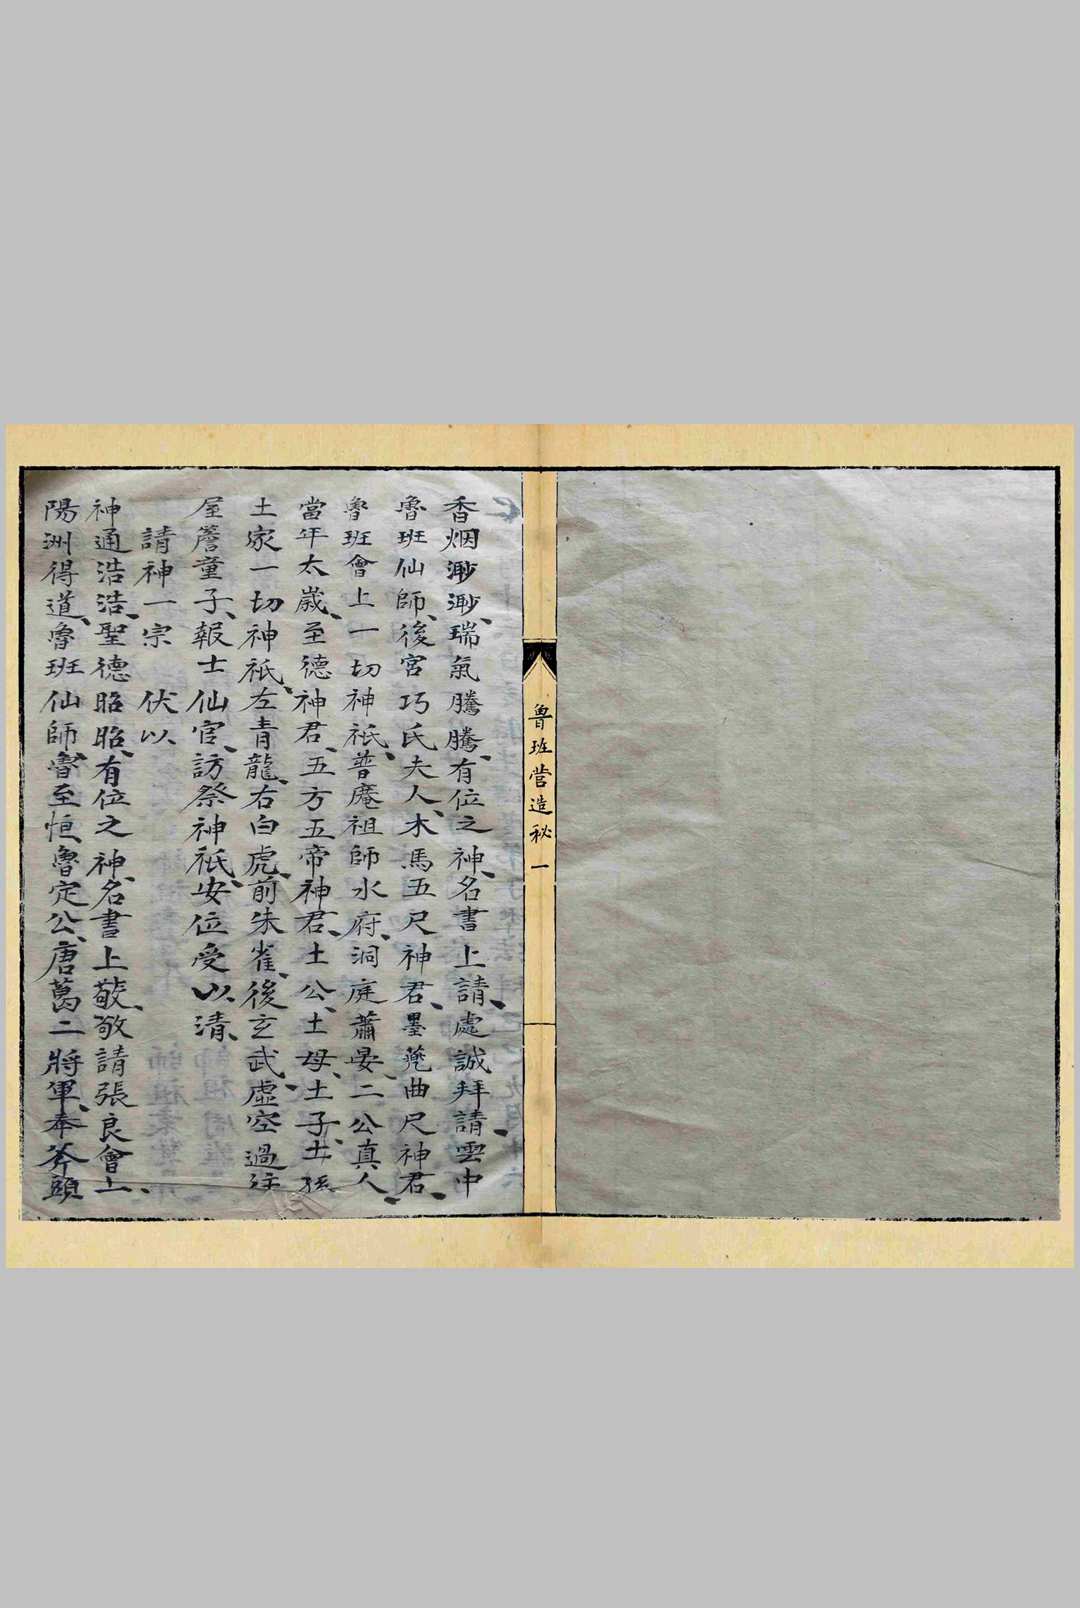 魯班營造秘 一
香烟渺渺、瑞氣騰騰、有位之神、名書上請、處誠拜請、雲中
魯班仙師、後宮巧氏夫人、木馬五尺神君、墨蔸曲尺神君、
魯班會上一切神祇、普庵祖師水府、洞庭蕭晏、二公真人、
當年太歲、至德神君、五方五帝神君、土公、土母、土子、土孫
土家一切神祇、左青龍、右白虎、前朱雀、後玄武、虛空過往
屋簷童子、報士仙官、訪祭神祇、安位受以清、
請神一宗 伏以
神通浩浩、聖德昭昭、有位之神、名書上敬、敬請張良會上、
陽洲得道、魯班仙師、魯至恒、魯定公、唐葛二將軍、奉斧頭